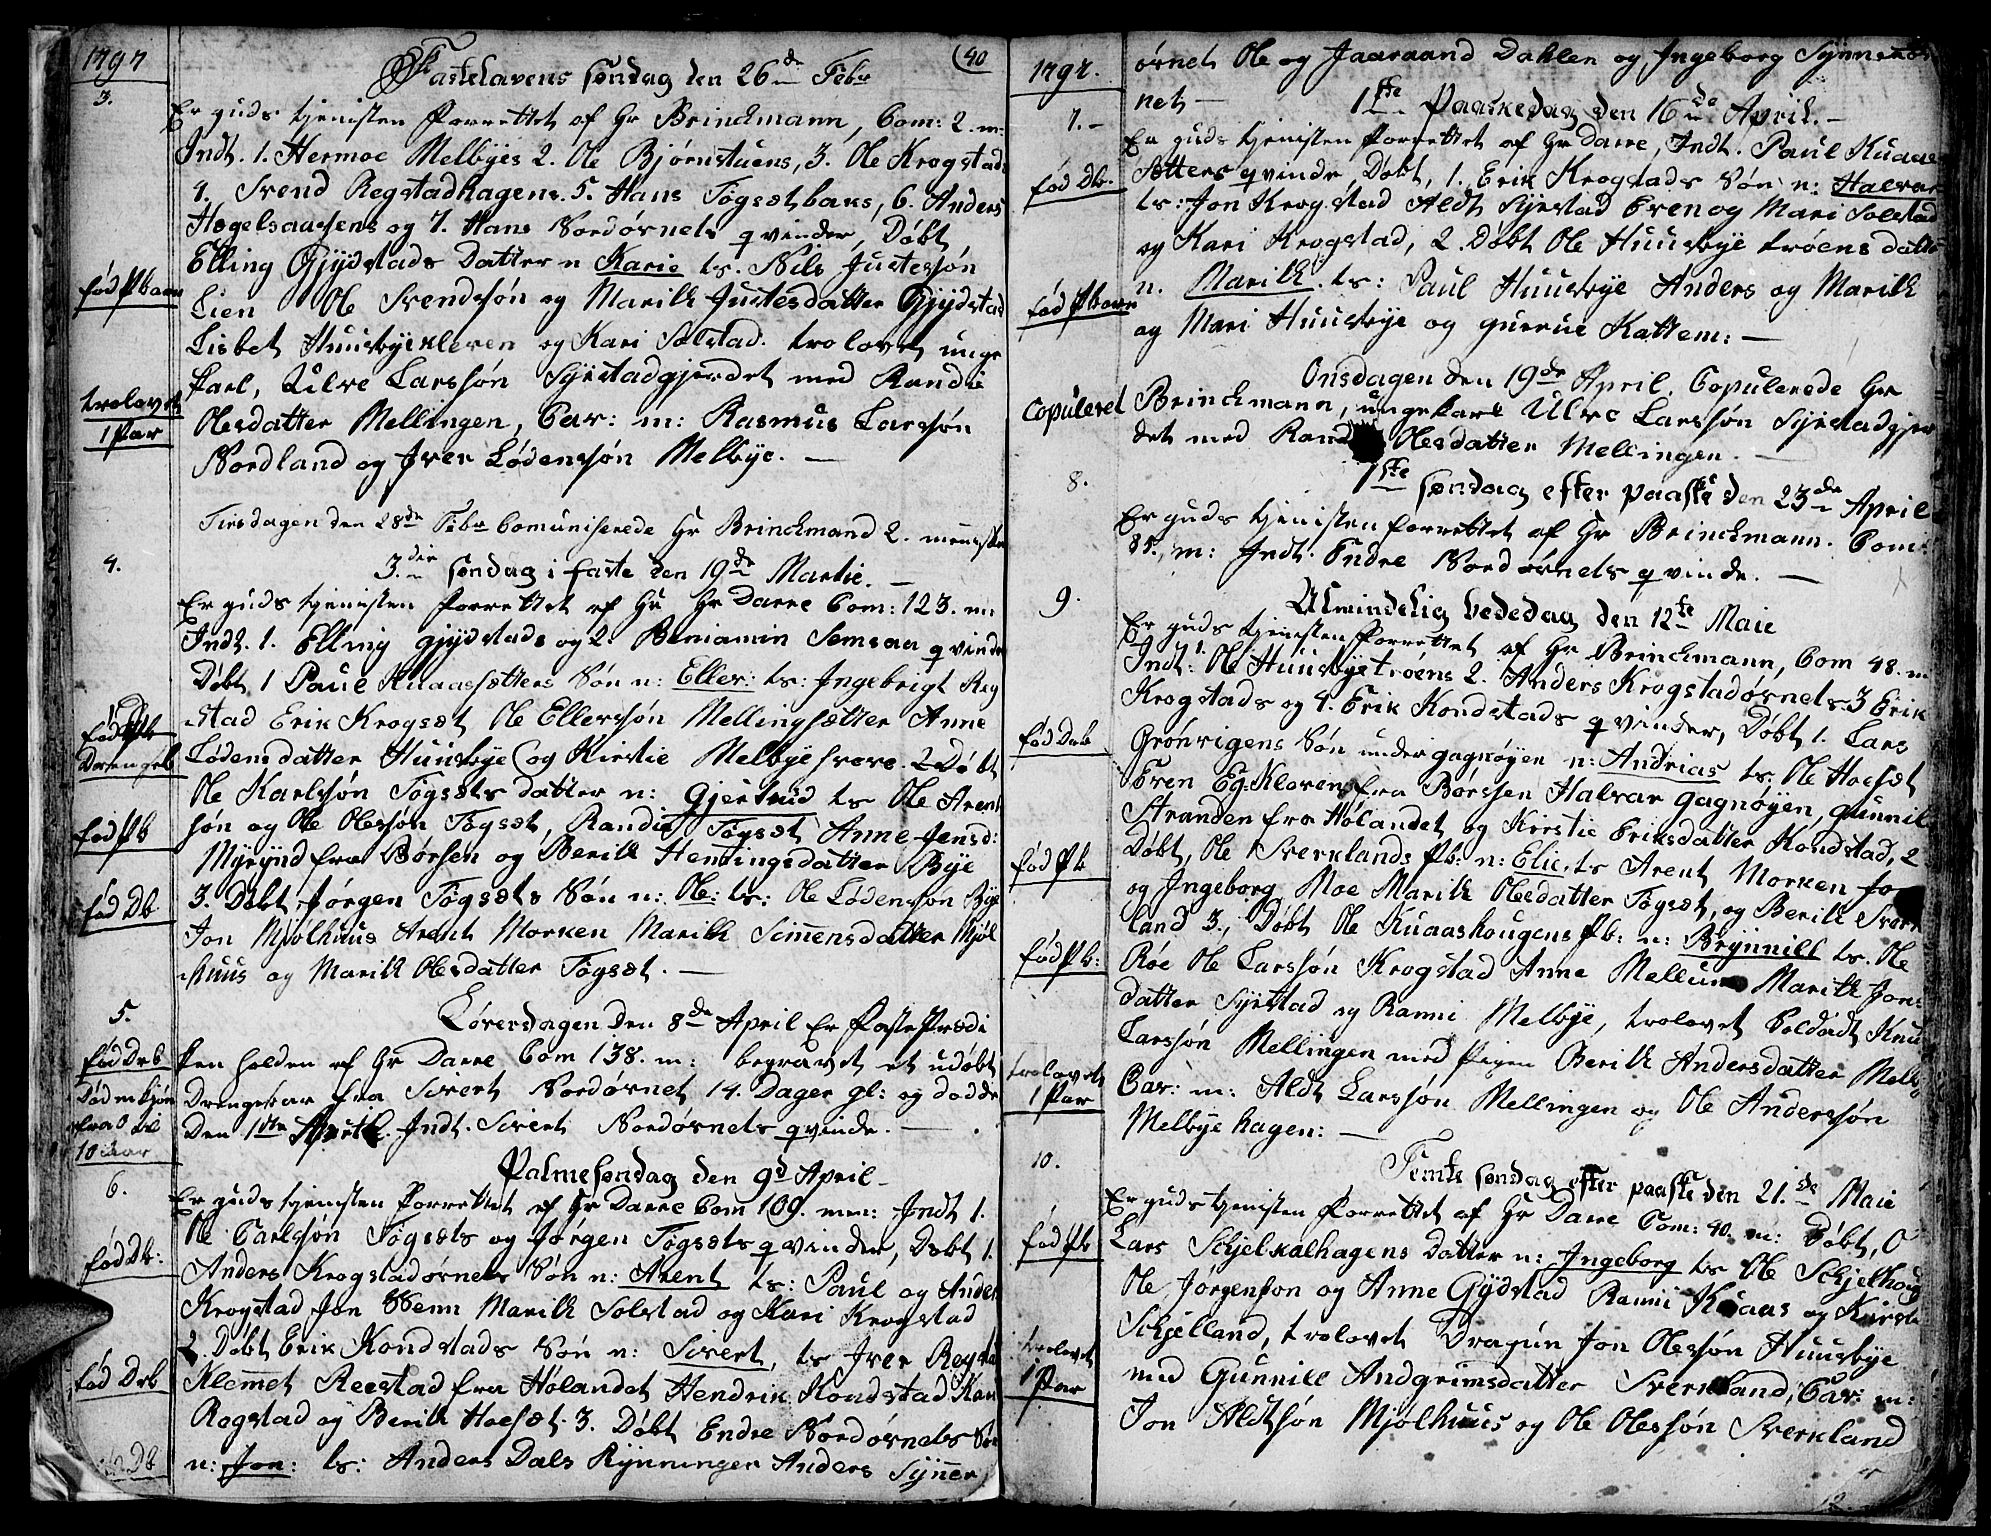 1797
40
Fastelavens søndag den 26de Febr
3.
Er guds tjenisten forrettet af Hr Brinckmann, Com: 2. m:
Indt. 1. Hermoe Melbyes 2. Ole Bjørnstuens, 3. Ole Krogstad
4. Svend Regstadhagens. 5. Hans Togsætbaks, 6. Anders
Hegelsaasens og 7. Hans Nordørnets qvinder, Døbt
Elling Gjydstads Datter n Karie ts. Nils Justessøn
fød Pbarn
Lien Ole Svendssøn og Marith Justesdatter Gjydstad
Lisbet Huusbyekleven og Kari Solstad. trolovet unge
karl, Ulve Larssøn Syrstadgjerdet med Randi
trolovet
1 Par
Olesdatter Mellingen, Cav: m: Rasmus Larssøn
Nordland og Iver Lødenssøn Melbye. —
Tirsdagen den 28de Febr Comuniserede Hr Brinckmand 2. menniske
3die søndag i faste den 19de Martie. —
4.
Er guds tjenisten forrettet af Hr Hr Darre Com: 123. m:
Indt. 1. Elling Gjydstads og 2. Beniamin Semsaa qvinde
Døbt 1 Paul Kuaassætters Søn n: Eller: ts: Ingebrigt Reg
stad Erik Krogsæt Ole Ellerssøn Mellingsætter Anne
fød Pb
Drengeb
Lødensdatter Huusbye og Kirstie Melbye 2 Døbt
Ole Karlssøn Togsæts datter n: Gjertrud ts Ole Arent
fød Pb
søn og Ole Olessøn Togsæt, Randi Togsæt Anne Jensd:
Myrynd fra Børsen og Berith Henningsdatter Bye
fød Db
3. Døbt Jørgen Togsæts Søn n: Ole: ts: Ole Lødenssøn Bye
Jon Mjølhuus Arent Morken Marith Simensdatter Mjøl
huus og Marith Olesdatter Togsæt. —
5.
Løversdagen den 8de April Er Faste Prædi
fød Drb
ken holden af Hr Darre Com 138. m: begravet et udøbt
Død mkjøn
Drengebar fra Sivert Nordørnet 14. Dager gl: og dødde
fra 0 til
Den 1ste April. Indt. Sivert Nordørnets qvinde. —
10 aar
Palmesøndag den 9d April —
6.
Er guds tjenisten forrettet af Hr Darre Com 109. men: Indt 1.
Ole Carlssøn Togsæts og Jørgen Togsæts qvinder, Døbt 1.
fød Db:
Anders Krogstadørnets Søn n: Arent ts: Paul og Anders
Krogstad Jon Wenn Marith Solstad og Kari Krogstad
2. Døbt Erik Kondstads Søn n: Sivert, ts Iver Regstad
fød Drb
Klemet Reestad fra Hølandet Hendrik Kondstad Kari
Rogstad og Berith Hoesæt. 3. Døbt Endre Nordørnets Søn
Db
n: Jon: ts: Anders Dals Rynninger Anders Synner
1797.
ørnet Ole og Jaaraand Dahlen og Ingeborg Synnerør
net —
1ste Paaskedag den 16de April. —
7. —
Er guds tjenisten forrettet af Hr Darre, Indt. Paul Kuaas
fød Db.
sætters qvinde, Døbt, 1. Erik Krogstads Søn n: Halvar
ts: Jon Krogstad Aldt Syrstad Even og Mari Solstad
og Kari Krogstad, 2. Døbt Ole Huusbye trøens datter
fød Pbarn
n. Marith. ts: Paul Huusbye Anders og Marith
og Mari Huusbye og gurrue Kattem: —
Onsdagen den 19de April. Copulerede Hr
Copuleret
Brinckmann, ungekarl Ulve Larssøn Syrstadgjer
det med Rand Olesdatter Mellingen. —
8.
1ste søndag efter paaske den 23de April
Er guds tjenisten forrettet af Hr Brinckmann. Com:
85. m: Indt. Endre Nordørnets qvinde. —
9.
Almindelig bededag den 12te Maie
Er guds tjenisten forrettet af Hr Brinckmann, Com 48. m
Indt. 1. Ole Huusbyetrøens 2. Anders Krogstadørnets 3 Erik
Krogstads og 4. Erik Kondstads qvinder, Døbt 1. Lars
fød Drb
Grønvigens Søn under gagnøyen n: Andrias ts: Ole Hoesæt
Even Eg: Kloven fra Børssen Halvar Gagnøyen, Gunnil
Stranden fra Hølandet, og Kirstie Eriksdatter Kondstad, 2
fød Pb
Døbt, Ole Sverklands Pb: n: Elie. ts Arent Morken
og Ingeborg Moe Marith Olesdatter Togsæt, og Berith Sverk
land 3., Døbt Ole Kuaashougens Pb: n: Brynnill ts. Ole
fød Pb:
Røe Ole Larssøn Krogstad Anne Mellum Marith Jons
datter Syrstad og Ranni Melbye, trolovet Soldadt Knud
Larssøn Mellingen med Pigen Berith Andersdatter Melby
trolovet
1 Par
Cav: m: Aldt Larssøn Mellingen og Ole Anderssøn
Melbye hagen: —
10.
Femte søndag efter paaske den 21de Maie
Er guds tjenisten forrettet af Hr Darre Com: 40. m: Døbt,
fød Pb
Lars Schjelkalhagens Datter n: Ingeborg ts Ole Schjelhoug
Ole Jørgenson og Anne Gydstad Ranni Kuaas og Kirsti
Schjelland, trolovet Dragun Jon Olessøn Huusbye
trolovet
1 Par
med Gunnill Andgrimsdatter Sverkland, Cav: m:
Jon Aldtsøn Mjølhuus og Ole Olessøn Sverkland